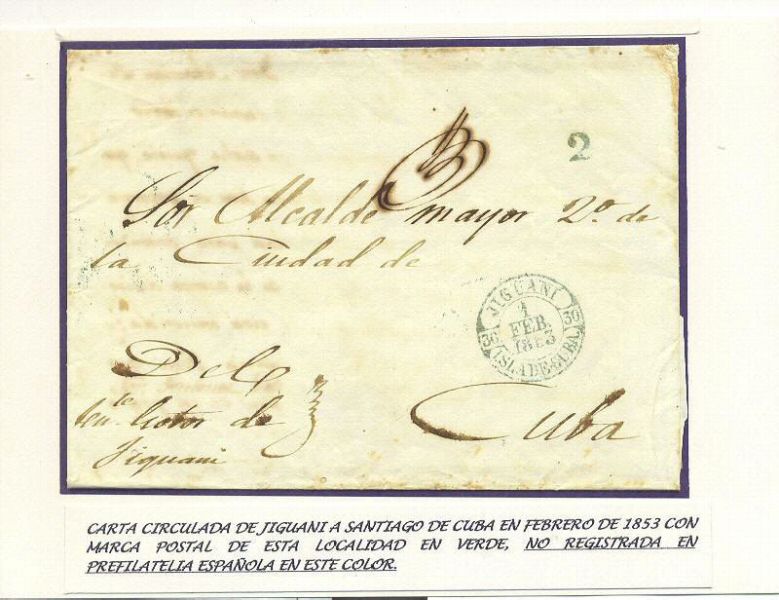 2
Sor Alcalde mayor 2º de
la Ciudad de
JIGUANI
1
FEB.
1853
30 30
ISLA DE CUBA.
Del
ten.te Gvtor de
Jiguani
Cuba
CARTA CIRCULADA DE JIGUANI A SANTIAGO DE CUBA EN FEBRERO DE 1853 CON
MARCA POSTAL DE ESTA LOCALIDAD EN VERDE, NO REGISTRADA EN
PREFILATELIA ESPAÑOLA EN ESTE COLOR.